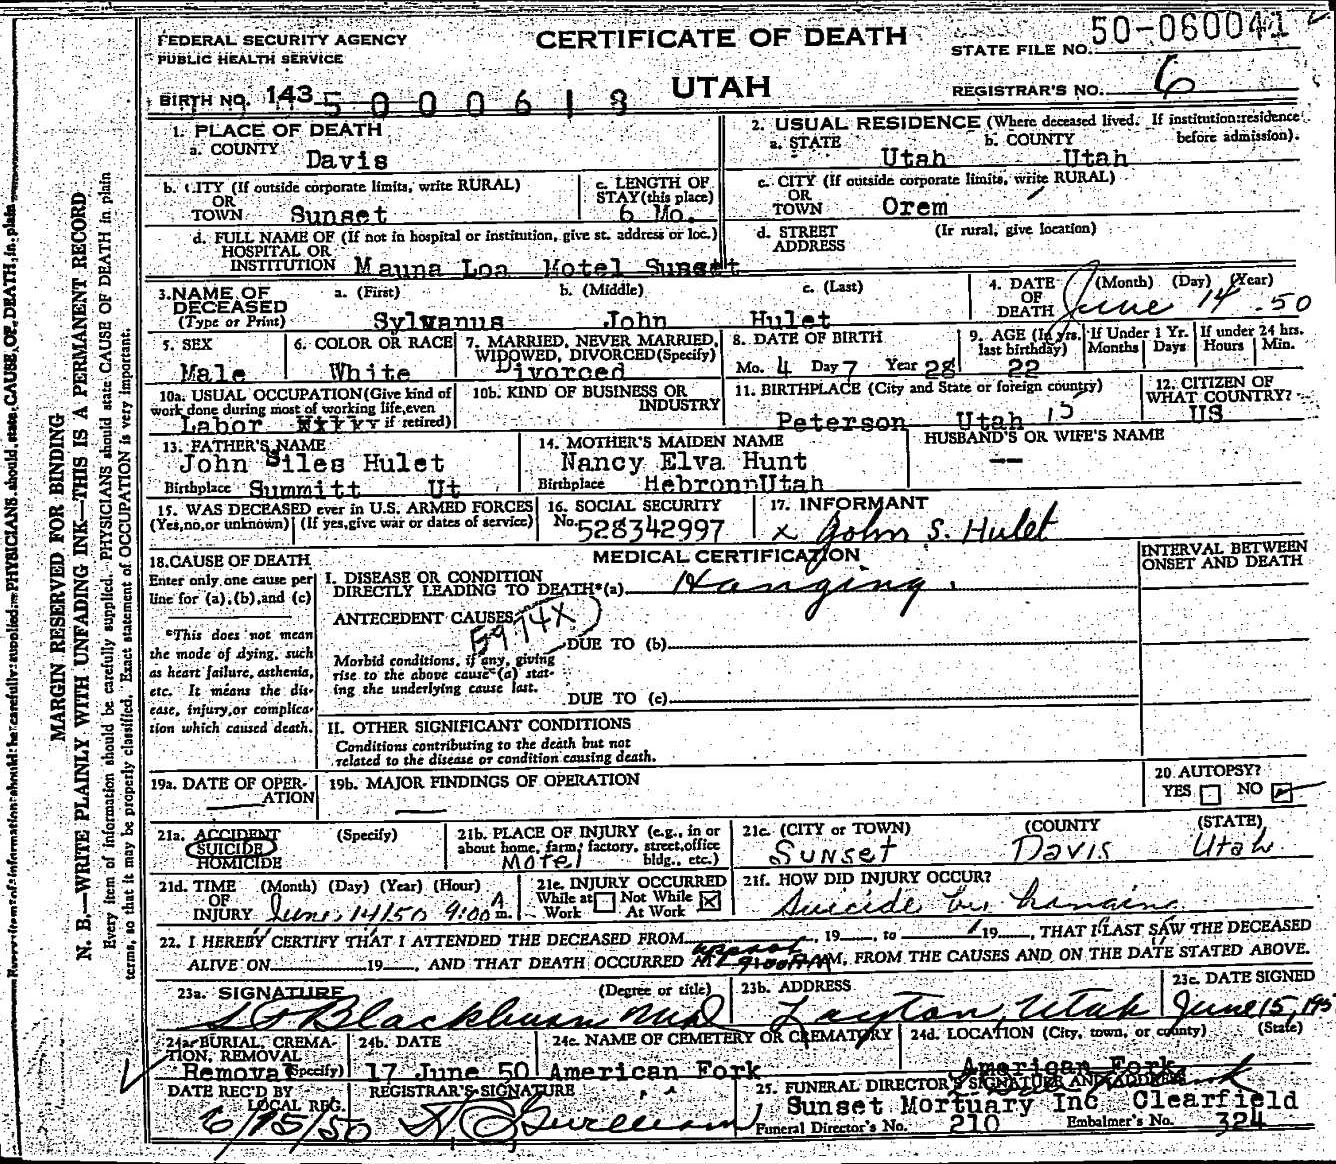 50-060041
FEDERAL SECURITY AGENCY
PUBLIC HEALTH SERVICE
CERTIFICATE OF DEATH
STATE FILE NO.
UTAH
BIRTH NO. 143 5000618
REGISTRAR'S NO. 6
1. PLACE OF DEATH
a. COUNTY
Davis
2. USUAL RESIDENCE (Where deceased lived. If institution: residence before admission).
a. STATE b. COUNTY
Utah Utah
b. CITY (If outside corporate limits, write RURAL)
OR
TOWN Sunset
c. LENGTH OF
STAY (this place)
6 Mo.
c. CITY (If outside corporate limits, write RURAL)
OR
TOWN Orem
d. FULL NAME OF (If not in hospital or institution, give st. address or loc.)
HOSPITAL OR
INSTITUTION Mauna Loa Motel Sunset
d. STREET (If rural, give location)
ADDRESS
3. NAME OF
DECEASED
(Type or Print)
a. (First) b. (Middle) c. (Last)
Sylvanus John Hulet
4. DATE (Month) (Day) (Year)
OF
DEATH June 14 50
5. SEX
Male
6. COLOR OR RACE
White
7. MARRIED, NEVER MARRIED,
WIDOWED, DIVORCED (Specify)
Divorced
8. DATE OF BIRTH
Mo. 4 Day 7 Year 28
9. AGE (In yrs. last birthday)
22
If Under 1 Yr.
Months Days
If under 24 hrs.
Hours Min.
10a. USUAL OCCUPATION (Give kind of
work done during most of working life, even
if retired)
Labor
10b. KIND OF BUSINESS OR
INDUSTRY
11. BIRTHPLACE (City and State or foreign country)
Peterson Utah 15
12. CITIZEN OF
WHAT COUNTRY?
US
13. FATHER'S NAME
John Siles Hulet
Birthplace Summitt Ut
14. MOTHER'S MAIDEN NAME
Nancy Elva Hunt
Birthplace Hebron Utah
HUSBAND'S OR WIFE'S NAME
--
15. WAS DECEASED ever in U.S. ARMED FORCES
(Yes, no, or unknown) (If yes, give war or dates of service)
16. SOCIAL SECURITY
No. 528342997
17. INFORMANT
x John S. Hulet
18. CAUSE OF DEATH
Enter only one cause per
line for (a), (b), and (c)
*This does not mean
the mode of dying, such
as heart failure, asthenia,
etc. It means the dis-
ease, injury, or complica-
tion which caused death.
MEDICAL CERTIFICATION
INTERVAL BETWEEN
ONSET AND DEATH
I. DISEASE OR CONDITION
DIRECTLY LEADING TO DEATH*(a) Hanging.
ANTECEDENT CAUSES
E974X
DUE TO (b)
Morbid conditions, if any, giving
rise to the above cause (a) stat-
ing the underlying cause last.
DUE TO (c)
II. OTHER SIGNIFICANT CONDITIONS
Conditions contributing to the death but not
related to the disease or condition causing death.
19a. DATE OF OPER-
ATION
19b. MAJOR FINDINGS OF OPERATION
20 AUTOPSY?
YES NO
21a. ACCIDENT (Specify)
SUICIDE
HOMICIDE
21b. PLACE OF INJURY (e.g., in or
about home, farm, factory, street, office
bldg., etc.)
Motel
21c. (CITY or TOWN) (COUNTY (STATE)
Sunset Davis Utah
21d. TIME (Month) (Day) (Year) (Hour)
OF
INJURY June 14/50 9:00 A m.
21e. INJURY OCCURRED
While at Work Not While At Work
21f. HOW DID INJURY OCCUR?
Suicide by hanging
22. I HEREBY CERTIFY THAT I ATTENDED THE DECEASED FROM, 19, to 19, THAT I LAST SAW THE DECEASED
ALIVE ON 19, AND THAT DEATH OCCURRED AT 9:00 A M, FROM THE CAUSES AND ON THE DATE STATED ABOVE.
23a. SIGNATURE (Degree or title)
Blackburn MD
23b. ADDRESS
Layton, Utah
23c. DATE SIGNED
June 15, 195
24a. BURIAL, CREMA-
TION, REMOVAL
(Specify)
Removal
24b. DATE
17 June 50
24c. NAME OF CEMETERY OR CREMATORY
American Fork
24d. LOCATION (City, town, or county) (State)
American Fork
DATE REC'D BY
LOCAL REG.
6/15/50
REGISTRAR'S SIGNATURE
25. FUNERAL DIRECTOR'S SIGNATURE AND ADDRESS
Sunset Mortuary Inc Clearfield
Funeral Director's No. 210 Embalmer's No. 324
MARGIN RESERVED FOR BINDING
N. B.—WRITE PLAINLY WITH UNFADING INK—THIS IS A PERMANENT RECORD
Every item of information should be carefully supplied. PHYSICIANS should state CAUSE OF DEATH in plain
terms, so that it may be properly classified. Exact statement of OCCUPATION is very important.